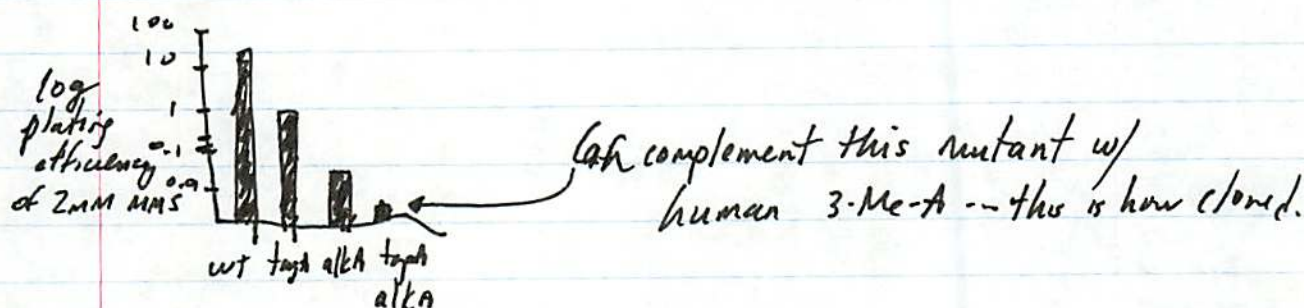 100
10
1
0.1
log
plating
efficiency
of 2mM MMS
wt tagA alkA tagA
alkA
Can complement this mutant w/
human 3-Me-A -- this is how cloned.